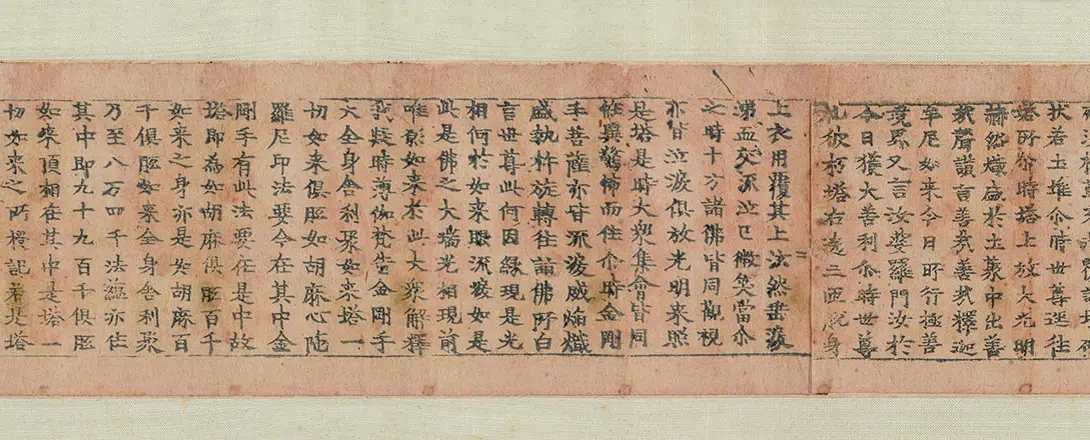 狀若土堆尒時世尊逕往
塔所尒時塔上放大光明
赫然熾盛於土聚中出善
哉聲讚言善哉善哉釋迦
牟尼如來今日所行極善
境界又言汝婆羅門汝於
今日獲大善利尒時世尊
礼彼朽塔右遶三匝脫身
上衣用覆其上泫然垂淚
涕血交流泣已微笑當尒
之時十方諸佛皆同觀視
亦甘泣淚俱放光明來照
是塔是時大衆集會皆同
恠異驚怖而住尒時金剛
手菩薩亦甘流淚威焰熾
盛執杵旋轉往詣佛所白
言世尊此何因緣現是光
相何於如來眼流淚如是
此是佛之大瑞光相現前
唯願如來於此大衆解釋
我疑時薄伽梵告金剛手
大全身舍利聚如來塔一
切如來俱胝如胡麻心陁
羅尼印法要今在其中金
剛手有此法要在是中故
塔即為如胡麻俱胝百千
如來之身亦是如胡麻百
千俱胝如來全身舍利聚
乃至八万四千法蘊亦住
其中即九十九百千俱胝
如來頂相在其中是塔一
切如來之所授記若是塔